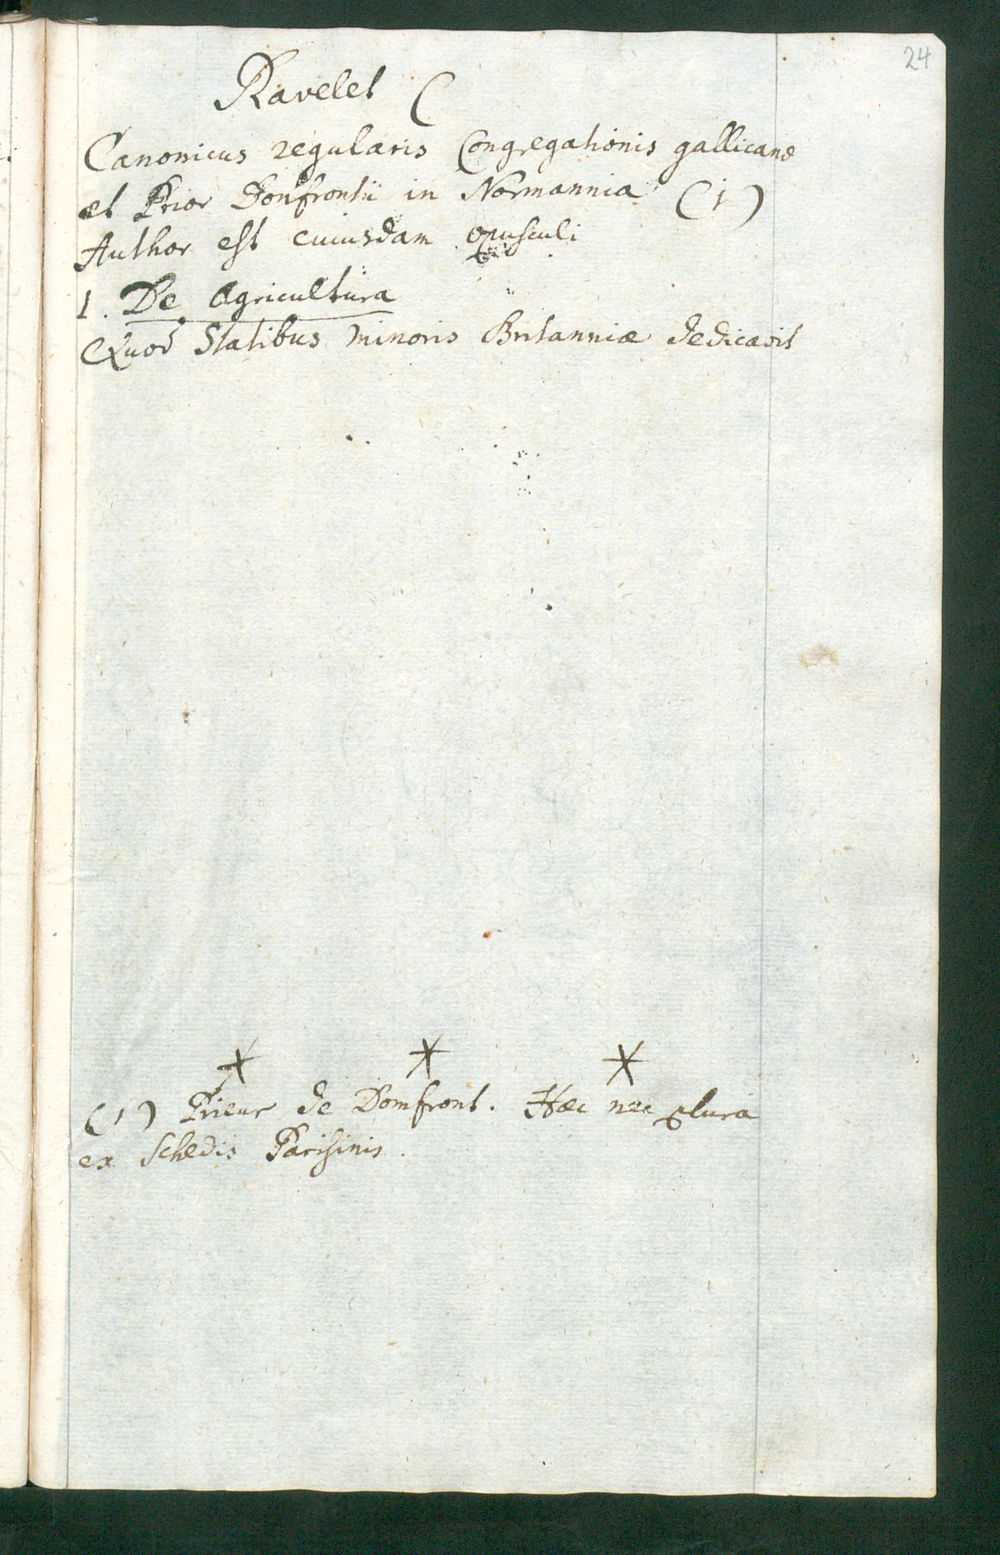 24
Ravelet (
Canonicus regularis Congregationis gallicanæ
et Prior Donfrontii in Normannia (1)
Author est cuiusdam opusculi
1. De Agricultura
Quod Statibus minoris Britanniæ dedicavit
(1) Prieur de Domfront. Hæc nec plura
ex Schedis Parisinis.